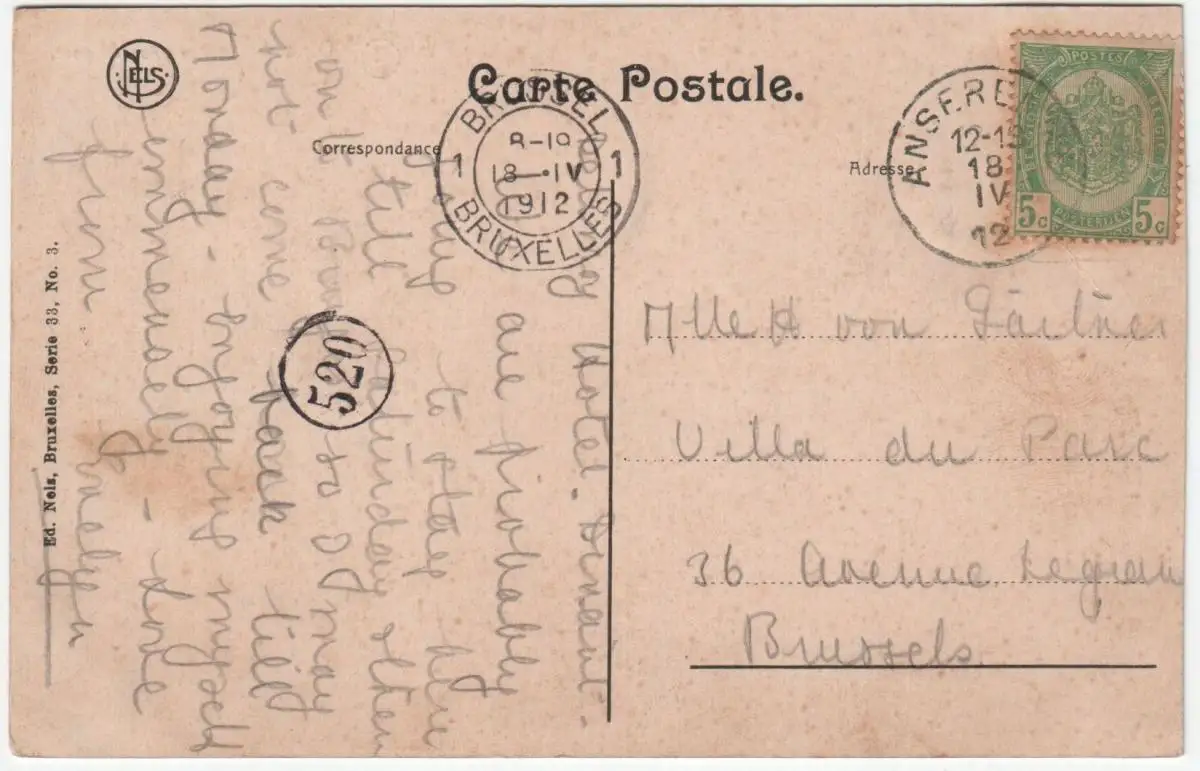 NELS
Carte Postale.
Correspondance
Adresse
BRUSSEL
1 8-19 1
18-IV
1912
BRUXELLES
ANSERE
12-15
18
IV
12
POSTES
POSTERIJEN
5c 5c
520
Ed. Nels, Bruxelles, Serie 33, No. 3.
Mlle H von Gärtner
Villa du Parc
36 Avenue Legran
Brussels
Hotel. Dinant.
They are probably
to stay here
till Saturday & then
on to so I may
not come back till
Monday - enjoying myself
immensely - Love
from Evelyn